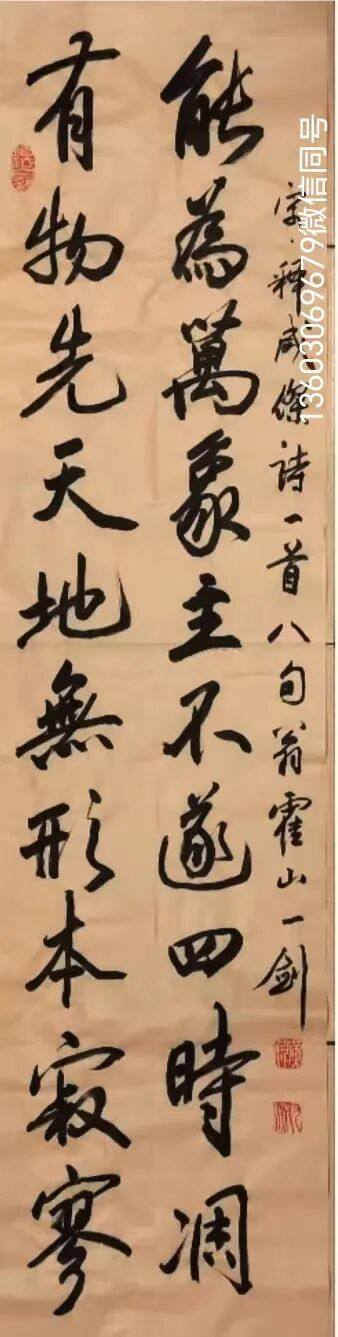 有物先天地無形本寂寥
能為萬象主不遂四時凋
宋·釋咸傑詩一首八句翁霍山一劍
13603069679微信同号